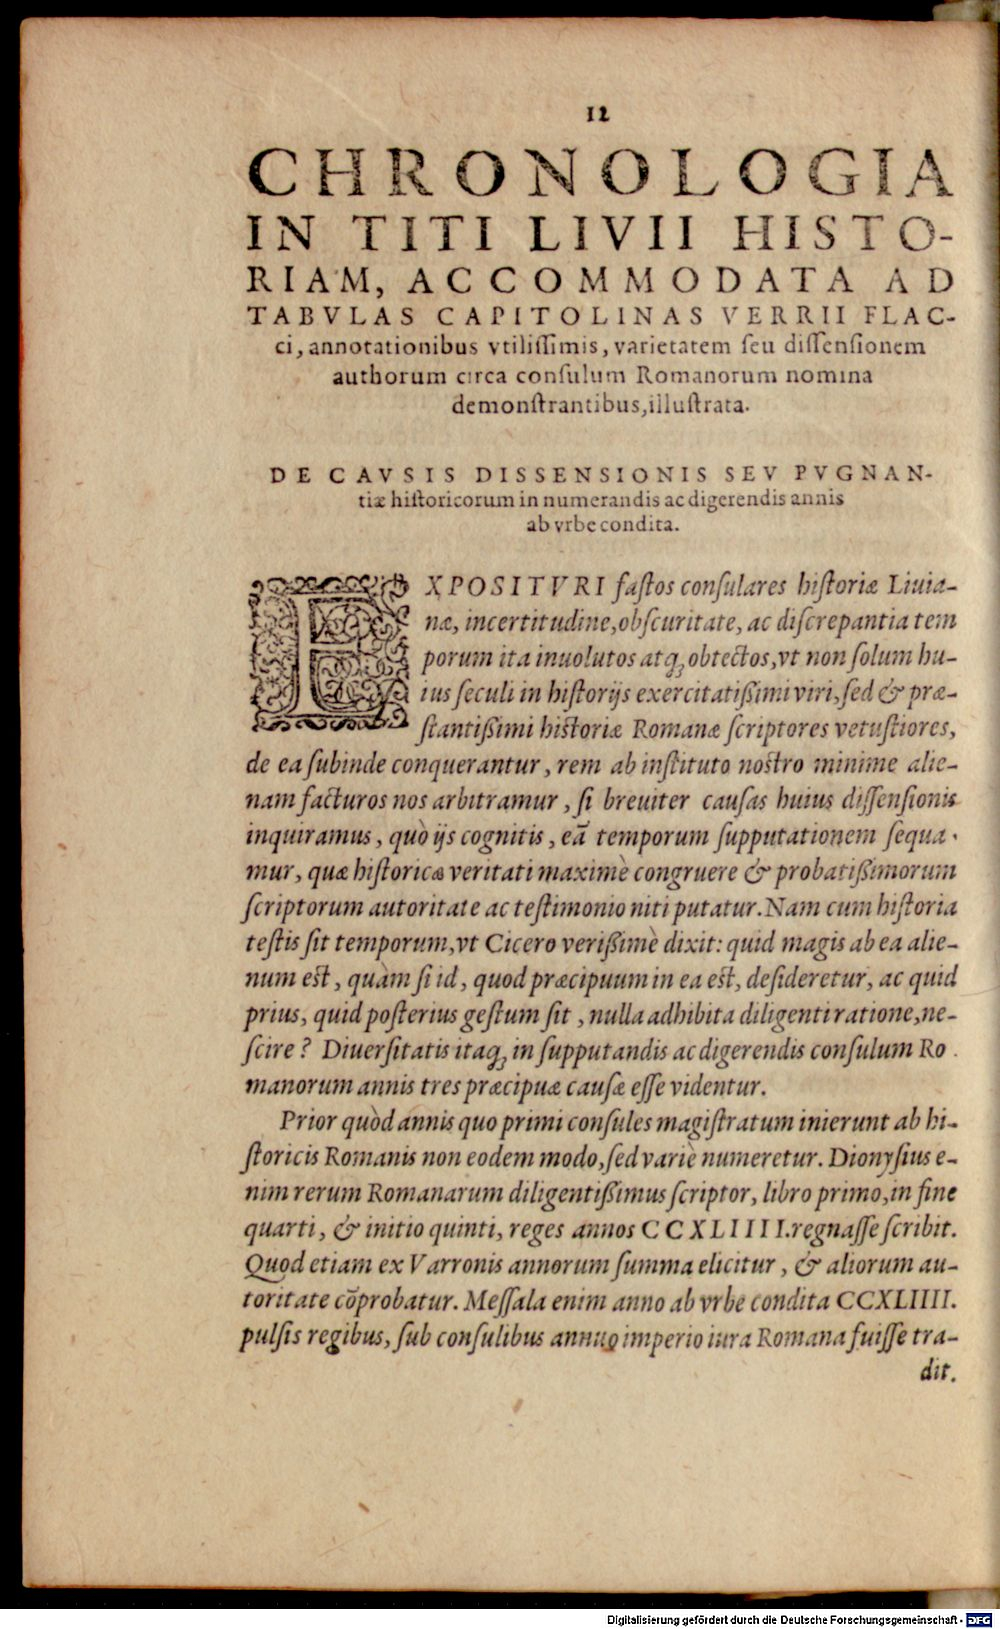 12
CHRONOLOGIA
IN TITI LIVII HISTO-
RIAM, ACCOMMODATA AD
TABVLAS CAPITOLINAS VERRII FLAC-
ci, annotationibus vtilissimis, varietatem seu dissensionem
authorum circa consulum Romanorum nomina
demonstrantibus, illustrata.
DE CAVSIS DISSENSIONIS SEV PVGNAN-
tiæ historicorum in numerandis ac digerendis annis
ab vrbe condita.
EXPOSITVRI fastos consulares historiæ Liuia-
næ, incertitudine, obscuritate, ac discrepantia tem
porum ita inuolutos atq; obtectos, vt non solum hu-
ius seculi in historijs exercitatißimi viri, sed & præ-
stantißimi historiæ Romanæ scriptores vetustiores,
de ea subinde conquerantur, rem ab instituto nostro minime alie-
nam facturos nos arbitramur, si breuiter causas huius dissensionis
inquiramus, quò ijs cognitis, eā temporum supputationem sequa-
mur, quæ historicæ veritati maximè congruere & probatißimorum
scriptorum autoritate ac testimonio niti putatur. Nam cum historia
testis sit temporum, vt Cicero verißimè dixit: quid magis ab ea alie-
num est, quàm si id, quod præcipuum in ea est, desideretur, ac quid
prius, quid posterius gestum sit, nulla adhibita diligenti ratione, ne-
scire? Diuersitatis itaq; in supputandis ac digerendis consulum Ro-
manorum annis tres præcipuæ causæ esse videntur.
Prior quòd annis quo primi consules magistratum inierunt ab hi-
storicis Romanis non eodem modo, sed variè numeretur. Dionysius e-
nim rerum Romanarum diligentißimus scriptor, libro primo, in fine
quarti, & initio quinti, reges annos CCXLIIII. regnasse scribit.
Quod etiam ex Varronis annorum summa elicitur, & aliorum au-
toritate cōprobatur. Messala enim anno ab vrbe condita CCXLIIII.
pulsis regibus, sub consulibus annuo imperio iura Romana fuisse tra-
dit.
Digitalisierung gefördert durch die Deutsche Forschungsgemeinschaft - DFG